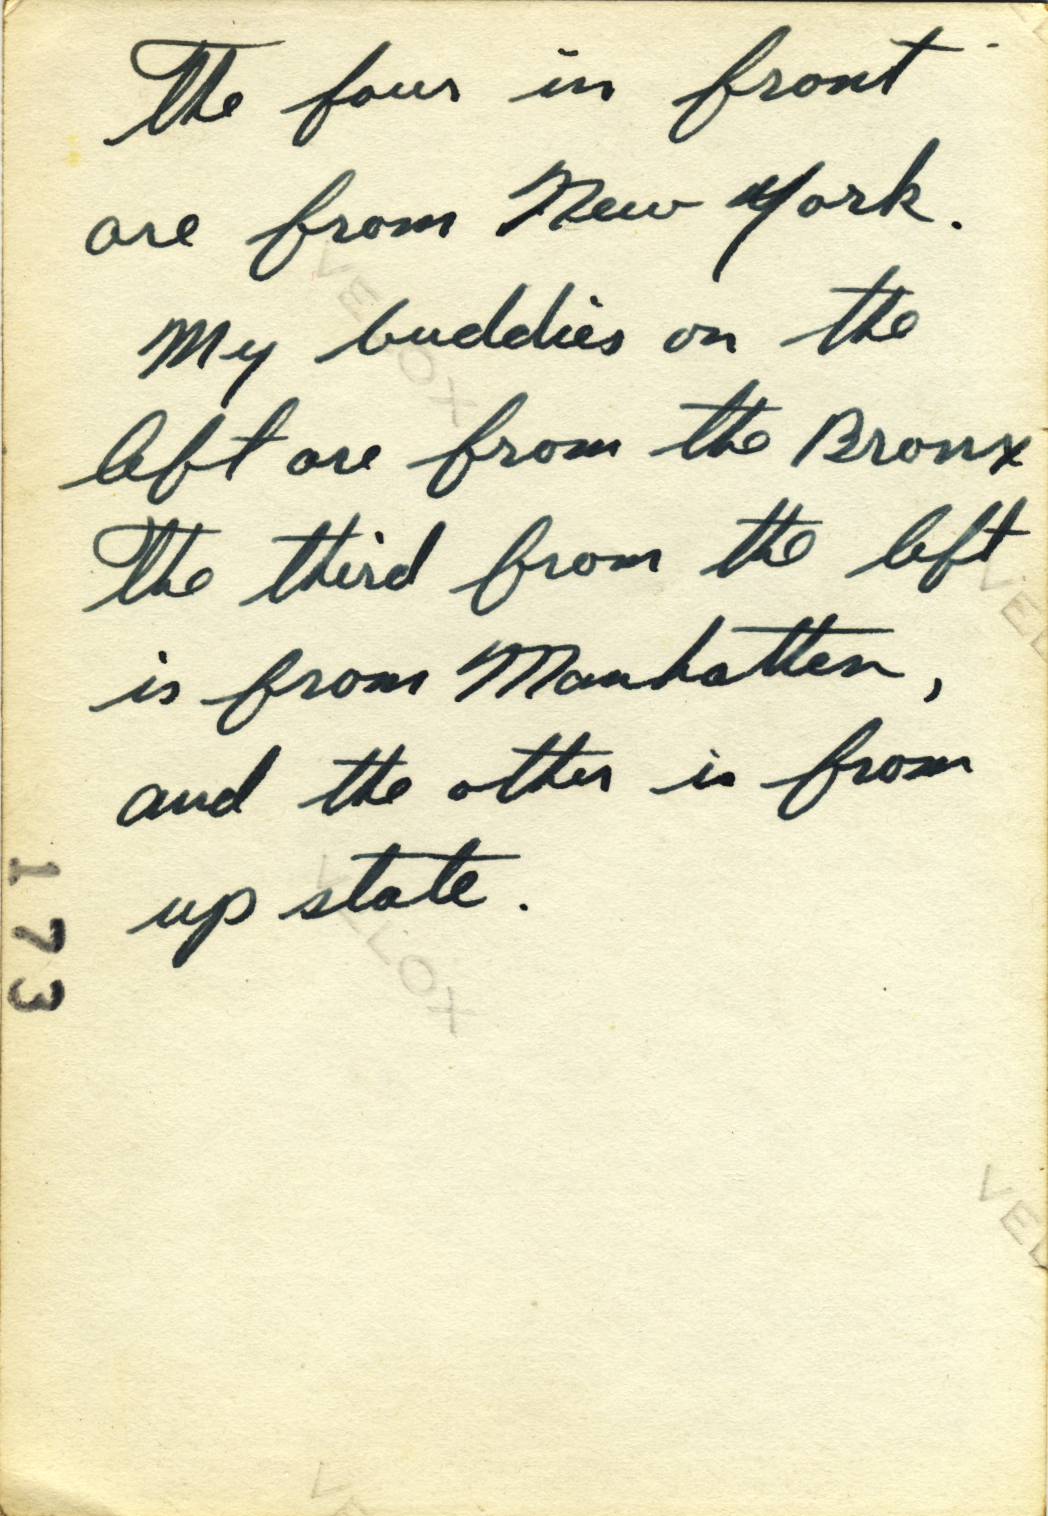 The four in front
are from New York.
My buddies on the
left are from the Bronx
The third from the left
is from Manhatten,
and the other is from
up state.
173
VELOX
VELOX
VEL
VEL
VE